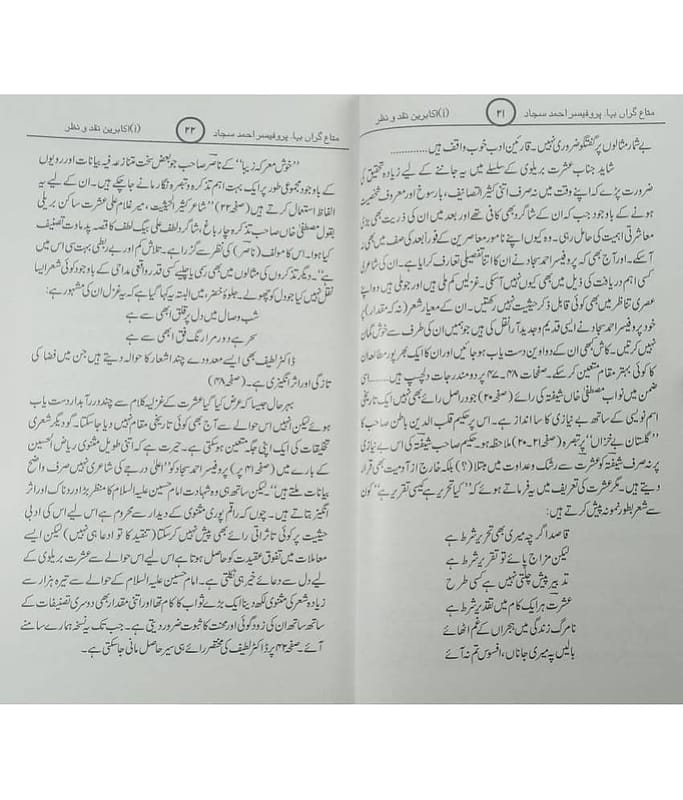 متاع گراں بہا۔ پروفیسر احمد سجاد ۲۱ (i) اکابرین نقد و نظر
بے شمار مثالوں پر گفتگو ضروری نہیں۔ قارئین ادب خوب واقف ہیں ............
شاید جناب عشرت بریلوی کے سلسلے میں یہ جاننے کے لیے زیادہ تحقیق کی
ضرورت پڑے کہ اپنے وقت میں نہ صرف اتنی کثیر التصانیف، بارسوخ اور معروف شخصیت
ہونے کے باوجود جب کہ ان کے شاگرد بھی کافی تھے اور بعد میں ان کی ذریت بھی بڑی
معاشرتی اہمیت کی حامل رہی۔ وہ کیوں اپنے نامور معاصرین کے فوراً بعد کی صف میں بھی نہ
آسکے۔ اور آج بھی کہ پروفیسر احمد سجاد نے ان کا اتنا تفصیلی تعارف کرایا ہے۔ ان کی شاعری
کسی اہم دریافت کی ذیل میں بھی کیوں نہیں آسکی۔ غزلیں کم ملی ہیں اور جو ملی ہیں وہ اپنے
عصری تناظر میں بھی کوئی قابل ذکر حیثیت نہیں رکھتیں۔ ان کے معیار شعر (نہ کہ مقدار) پر
خود پروفیسر احمد سجاد نے ایسی قدیم و جدید آرا نقل کی ہیں جو ہمیں ان کی طرف سے خوش گمان
نہیں کرتیں۔ کاش بھی ان کے دواوین دست یاب ہو جائیں اور ان کا ایک بھرپور مطالعہ ان
کا کوئی بہتر مقام متعین کر سکے۔ صفحات ۳۸۔ ۳۷ پر دو مندرجات دلچسپ ہیں ...... اسی
ضمن میں نواب مصطفیٰ خاں شیفتہ کی رائے (صفحہ ۲۰) جو دراصل رائے بھی نہیں ایک تاریخی
اسم نویسی کے ساتھ بے نیازی کا سا انداز ہے۔ اس پر حکیم قطب الدین باطن صاحب کا
”گلستان بے خزاں“ پر تبصرہ (صفحہ ۲۱۔۲۰) ملاحظہ ہو۔ حکیم صاحب شیفتہ کی اس بے نیازی
پر نہ صرف شیفتہ کو عشرت سے رشک و عداوت میں مبتلا (؟) بلکہ خارج از آدمیت بھی قرار
دیتے ہیں۔ مگر عشرت کی تعریف میں یہ فرماتے ہوئے کہ ”کیا تحریر ہے کیسی تقریر ہے“ کون
سے شعر بطور نمونہ پیش کرتے ہیں:
قاصد اگرچہ میری بھی تحریر شرط ہے
لیکن مزاج پائے تو تقریر شرط ہے
تدبیر پیش چلتی نہیں ہے کسی طرح
عشرت ہر ایک کام میں تقدیر شرط ہے
تا مرگ زندگی میں ہجراں کے غم اٹھائے
بالیں پہ میری جاناں، افسوس تم نہ آئے
متاع گراں بہا۔ پروفیسر احمد سجاد ۲۲ (i) اکابرین نقد و نظر
”خوش معرکہ زیبا“ کے ناصر صاحب جو بعض سخت متنازعہ فیہ بیانات اور رویوں
کے باوجود مجموعی طور پر ایک بہت اہم تذکرہ و تبصرہ نگار مانے جا چکے ہیں۔ ان کے لیے یہ
الفاظ استعمال کرتے ہیں (صفحہ ۲۲) ”شاعر کثیر الحیثیت، میر غلام علی عشرت ساکن بریلی
بقول مصطفیٰ خاں صاحب تذکرہ چار باغ، شاگرد لطف علی بیگ لطف کا قصہ پدماوت تصنیف
کیا ہوا۔ اس کا مولف (ناصر) کی نظر سے گزرا ہے۔ تلاش کم اور بے ربطی بہت ہی اس میں
ہے“۔ دیگر تذکروں کی مثالوں میں بھی رسمی یا چلیے کسی قدر واقعی مداحی کے باوجود کوئی شعر ایسا
نقل نہیں کیا جو دل کو چھو لے۔ جلوۂ خضر میں البتہ یہ کہا گیا ہے کہ یہ غزل ان کی مشہور ہے:
شب وصال میں دل پر قلق ابھی سے ہے
سحر ہے دور مرا رنگ فق ابھی سے ہے
ڈاکٹر لطیف بھی ایسے معدودے چند اشعار کا حوالہ دیتے ہیں جن میں فضا کی
تازگی اور اثر انگیزی ہے۔ (صفحہ ۳۸)
بہر حال جیسا کہ عرض کیا گیا عشرت کے غزلیہ کلام سے چند در رآبدار دست یاب
ہوئے لیکن انہیں اس حوالے سے آج بھی کوئی تاریخی مقام نہیں دیا جا سکتا۔ گو دیگر شعری
تخلیقات کی ایک اپنی جگہ متعین ہو سکتی ہے۔ حیرت ہے کہ اتنی طویل مثنوی ریاض الحسین
کے بارے میں (صفحہ ۴۱ پر) پروفیسر احمد سجاد کو ”اعلیٰ درجے کی شاعری نہیں صرف واضح
بیانات ملتے ہیں“۔ لیکن ساتھ ہی وہ شہادت امام حسین علیہ السلام کا منظر بڑا دردناک اور اثر
انگیز بتاتے ہیں۔ چوں کہ راقم پوری مثنوی کے دیدار سے محروم ہے اس لیے اس کی ادبی
حیثیت پر کوئی تاثراتی رائے بھی پیش نہیں کر سکتا (تنقید کا تو ادعا ہی نہیں) لیکن ایسے
معاملات میں تفوق عقیدت کو حاصل ہوتا ہے اس لیے اس حوالے سے عشرت بریلوی کے
لیے دل سے دعائے خیر ہی نکلتی ہے۔ امام حسین علیہ السلام کے حوالے سے تیرہ ہزار سے
زیادہ شعر کی مثنوی لکھ دینا ایک بڑے ثواب کا کام تھا اور اتنی مقدار بھی دوسری تصنیفات کے
ساتھ ساتھ ان کی زود گوئی اور محنت کا ثبوت ضرور دیتی ہے۔ جب تک یہ نسخہ ہمارے سامنے
آئے۔ صفحہ ۴۲ پر ڈاکٹر لطیف کی مختصر رائے ہی سیر حاصل مانی جا سکتی ہے۔